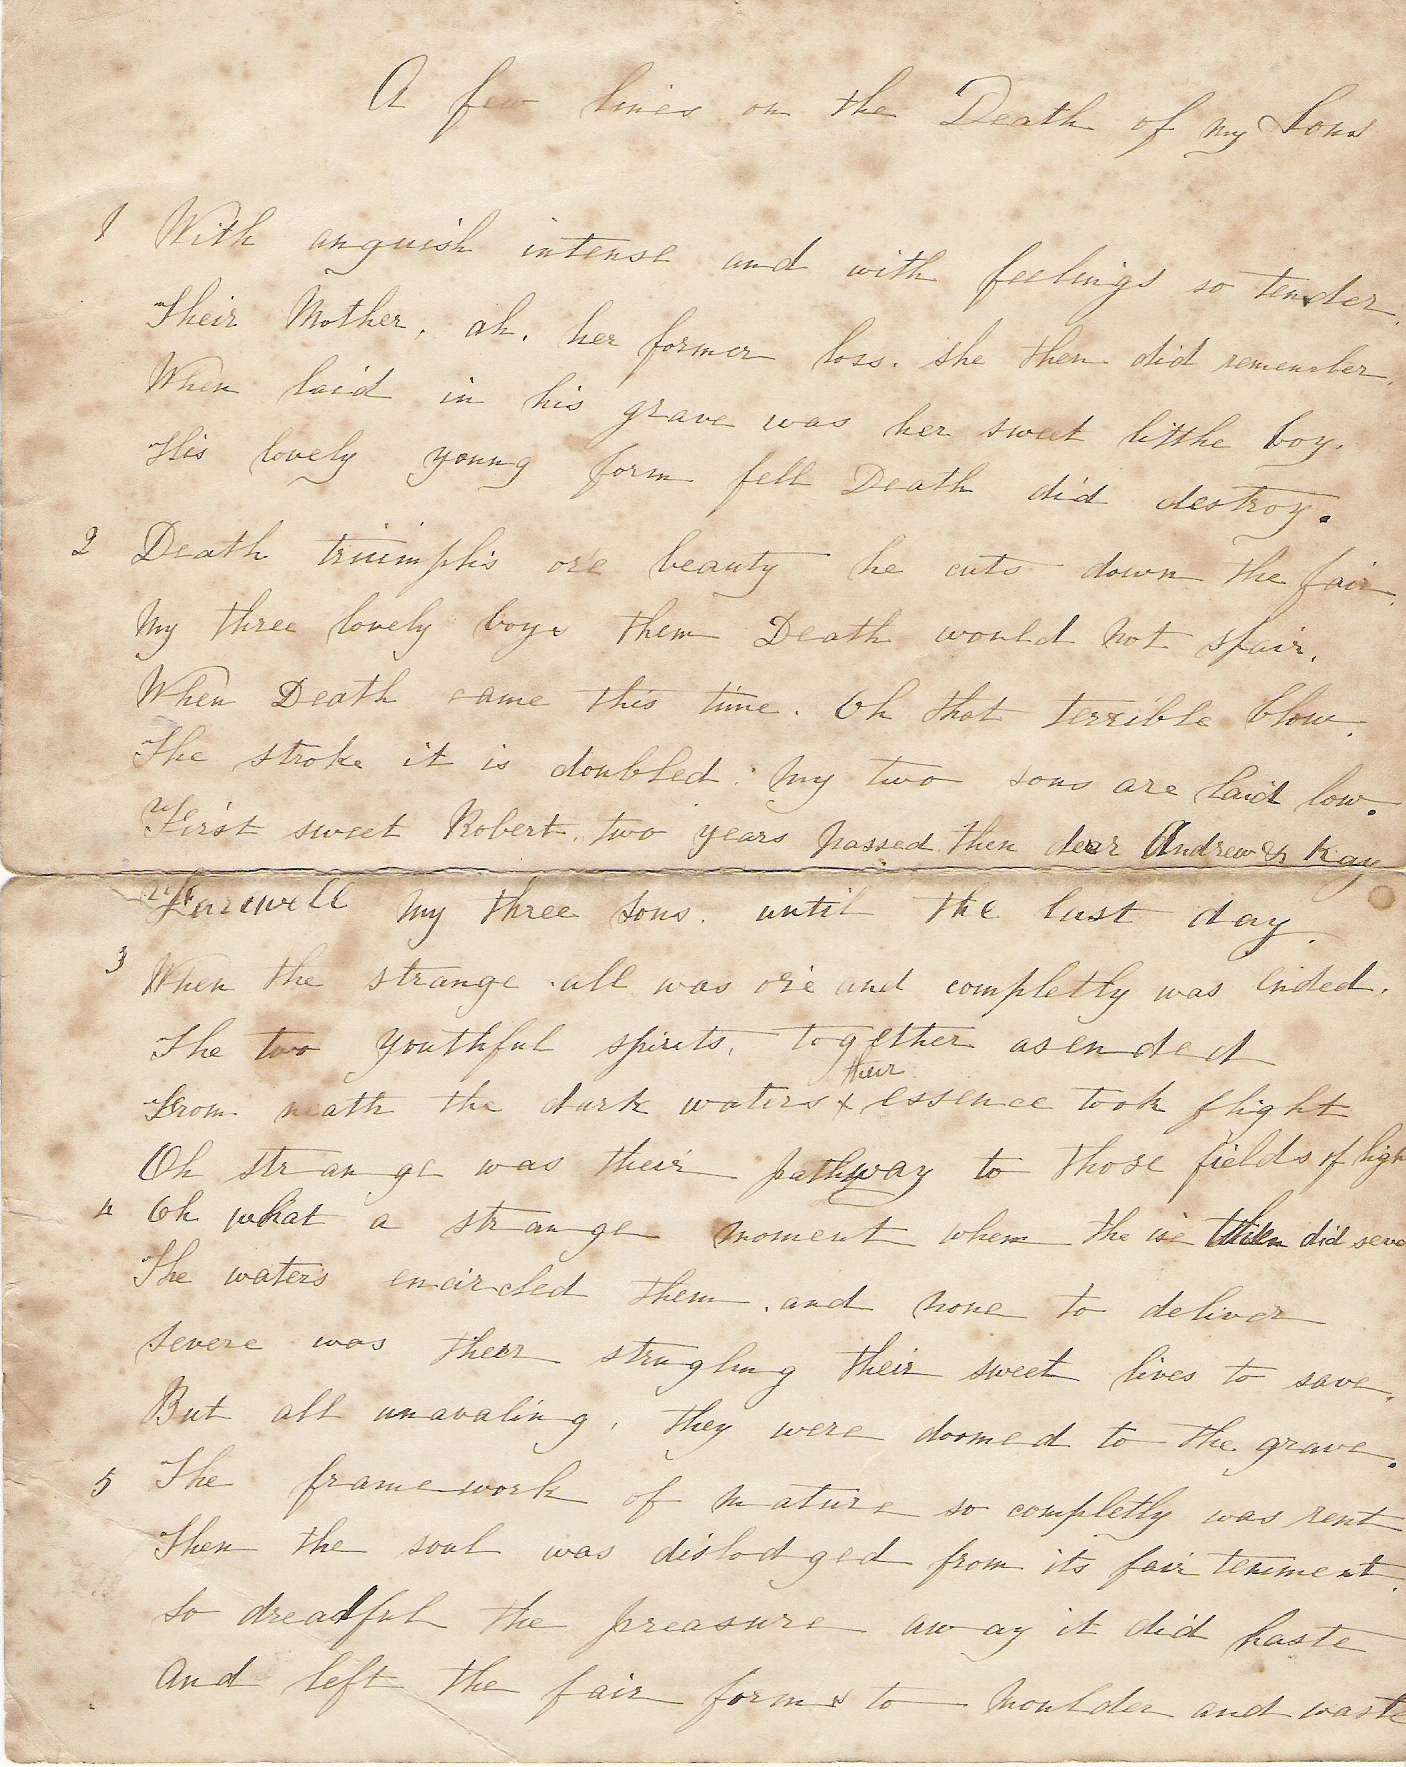 A few lines on the Death of my Sons
1 With anguish intense and with feelings so tender.
Their Mother, ah, her former loss. she then did remember.
When laid in his grave was her sweet litthe boy.
His lovely young form fell Death did destroy.
2 Death triumphs o're beauty he cuts down the fair.
My three lovely boys them Death would not spair.
When Death came this time. Oh that terrible blow.
The stroke it is doubled. my two sons are laid low.
First sweet Robert. two years passed then dear Andrew & Kay
Farewell my three sons. until the last day.
3 When the strange all was o're and completly was ended.
The two youthful spirits, together asended
their
From neath the dark waters x essence took flight
Oh strange was their pathway to those fields of ligh
4 Oh what a strange moment when the ise then did seve
The waters encircled them. and none to deliver
Severe was their strugling their sweet lives to save.
But all unavaling, they were doomed to the grave.
5 The framework of nature so completly was rent
Then the soul was dislodged from its fair teniment.
So dreadful the preasure away it did haste
And left the fair forms to moulder and waste